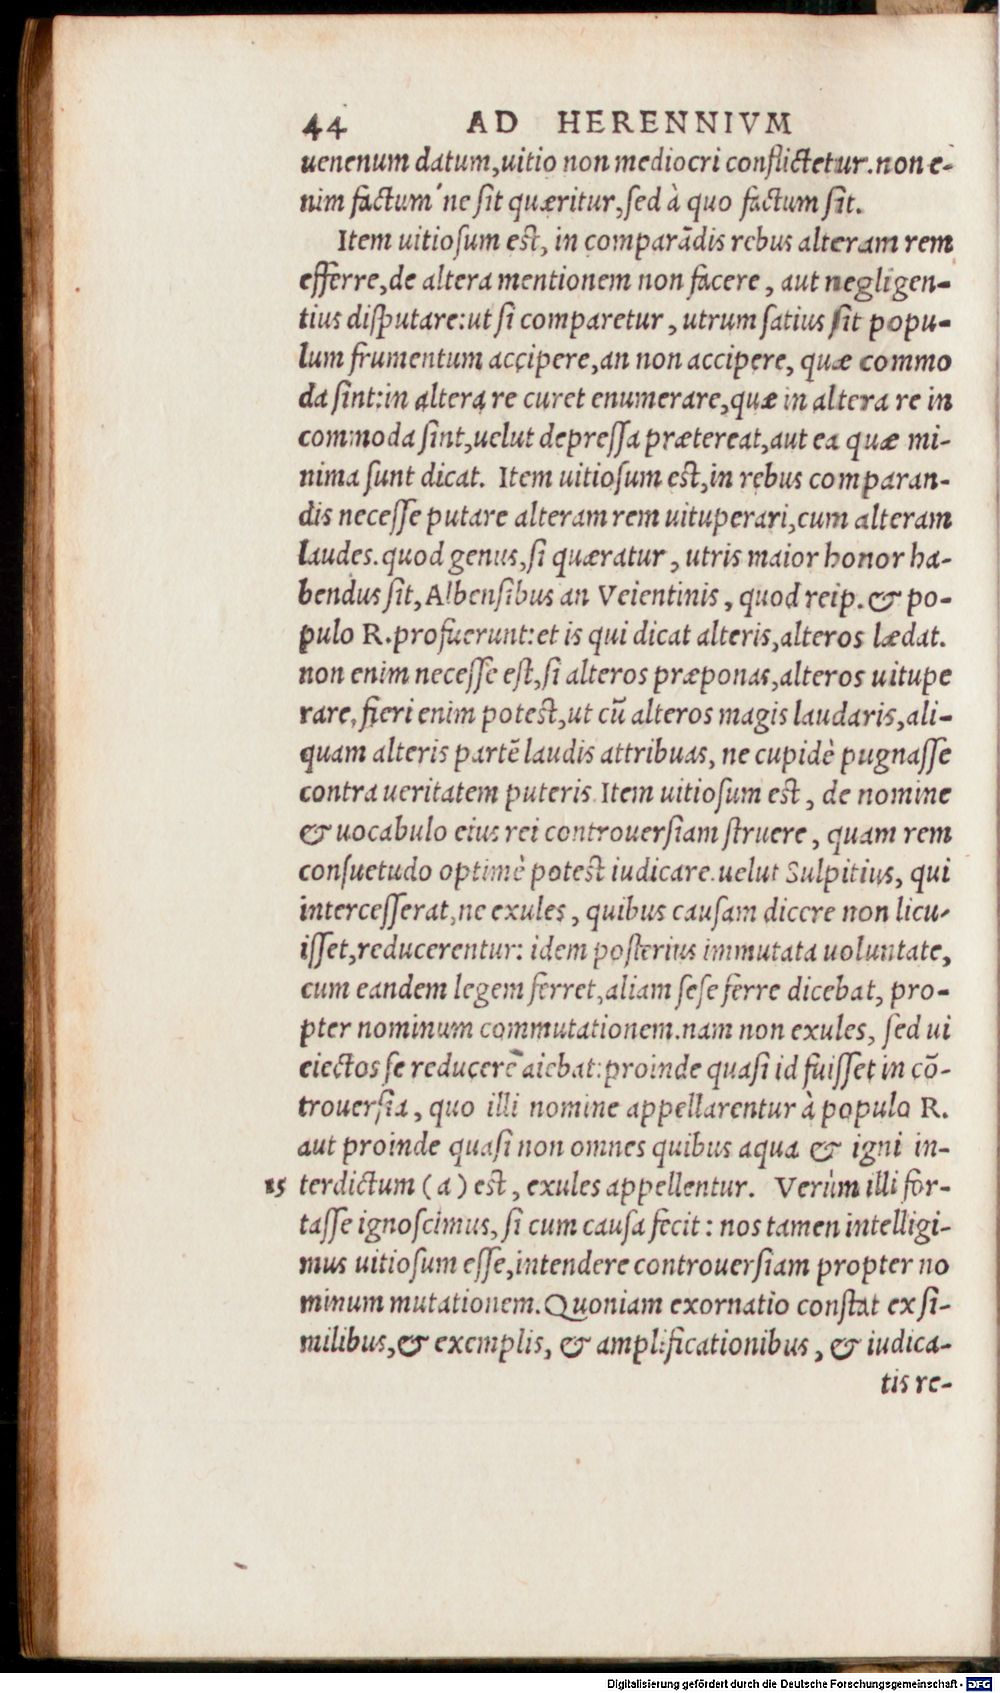 44 AD HERENNIVM
uenenum datum,uitio non mediocri conflictetur.non e-
nim factum'ne sit quæritur,sed à quo factum sit.
Item uitiosum est, in comparãdis rebus alteram rem
efferre,de altera mentionem non facere, aut negligen-
tius disputare:ut si comparetur, utrum satius sit popu-
lum frumentum accipere,an non accipere, quæ commo
da sint:in altera re curet enumerare,quæ in altera re in
commoda sint,uelut depressa prætereat,aut ea quæ mi-
nima sunt dicat. Item uitiosum est,in rebus comparan-
dis necesse putare alteram rem uituperari,cum alteram
laudes.quod genus,si quæratur, utris maior honor ha-
bendus sit,Albensibus an Veientinis, quod reip.& po-
pulo R.profuerunt:et is qui dicat alteris,alteros lædat.
non enim necesse est,si alteros præponas,alteros uitupe
rare,fieri enim potest,ut cũ alteros magis laudaris,ali-
quam alteris partẽ laudis attribuas, ne cupidè pugnasse
contra ueritatem puteris.Item uitiosum est, de nomine
& uocabulo eius rei controuersiam struere, quam rem
consuetudo optimè potest iudicare.uelut Sulpitius, qui
intercesserat,ne exules, quibus causam dicere non licu-
isset,reducerentur: idem posterius immutata uoluntate,
cum eandem legem ferret,aliam sese ferre dicebat, pro-
pter nominum commutationem.nam non exules, sed ui
eiectos se reducere aiebat:proinde quasi id fuisset in cõ-
trouersia, quo illi nomine appellarentur à populo R.
aut proinde quasi non omnes quibus aqua & igni in-
15 terdictum (a) est, exules appellentur. Verùm illi for-
tasse ignoscimus, si cum causa fecit: nos tamen intelligi-
mus uitiosum esse,intendere controuersiam propter no
minum mutationem.Quoniam exornatio constat ex si-
milibus,& exemplis, & amplificationibus, & iudica-
tis re-
Digitalisierung gefördert durch die Deutsche Forschungsgemeinschaft - DFG